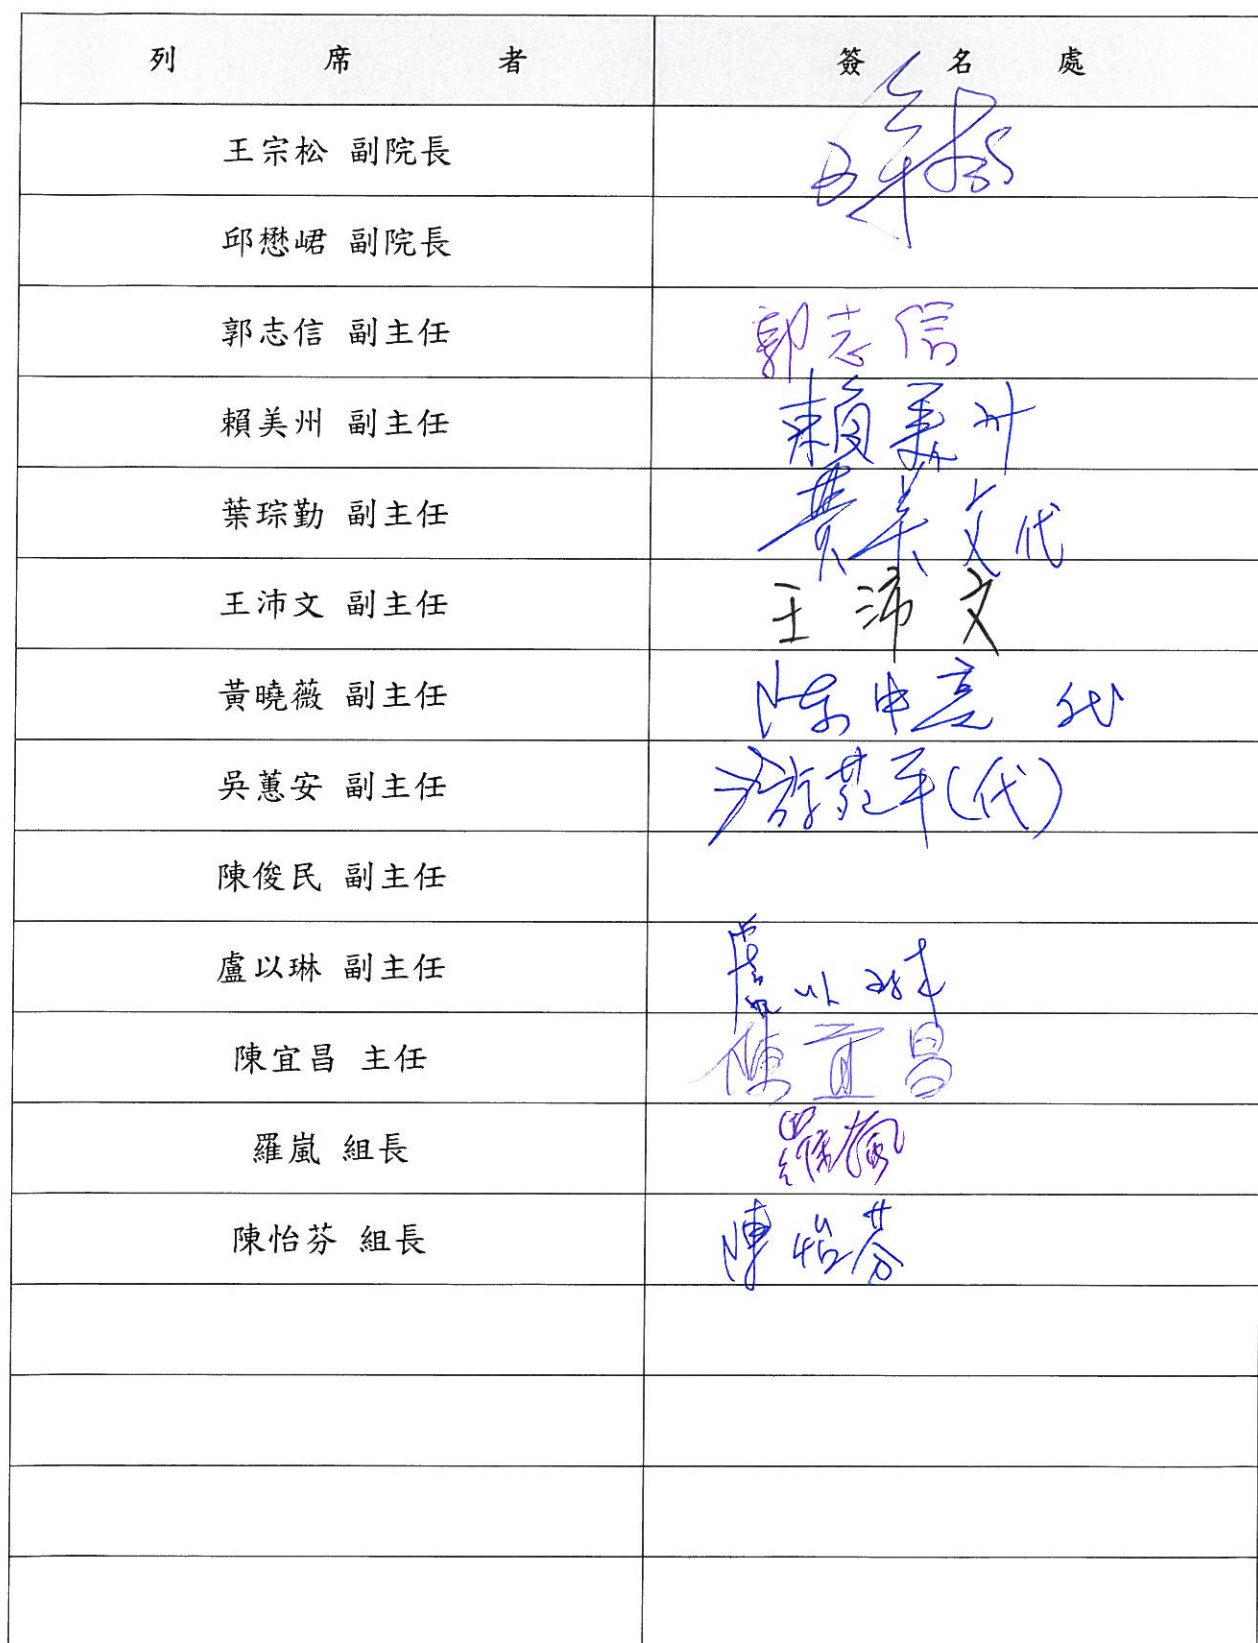 列席者 簽名處
王宗松 副院長 王宗松
邱懋峮 副院長
郭志信 副主任 郭志信
賴美州 副主任 賴美州
葉琮勤 副主任 代
王沛文 副主任 王沛文
黃曉薇 副主任 陳中亮 代
吳蕙安 副主任 (代)
陳俊民 副主任
盧以琳 副主任 盧以琳
陳宜昌 主任 陳宜昌
羅嵐 組長 羅嵐
陳怡芬 組長 陳怡芬